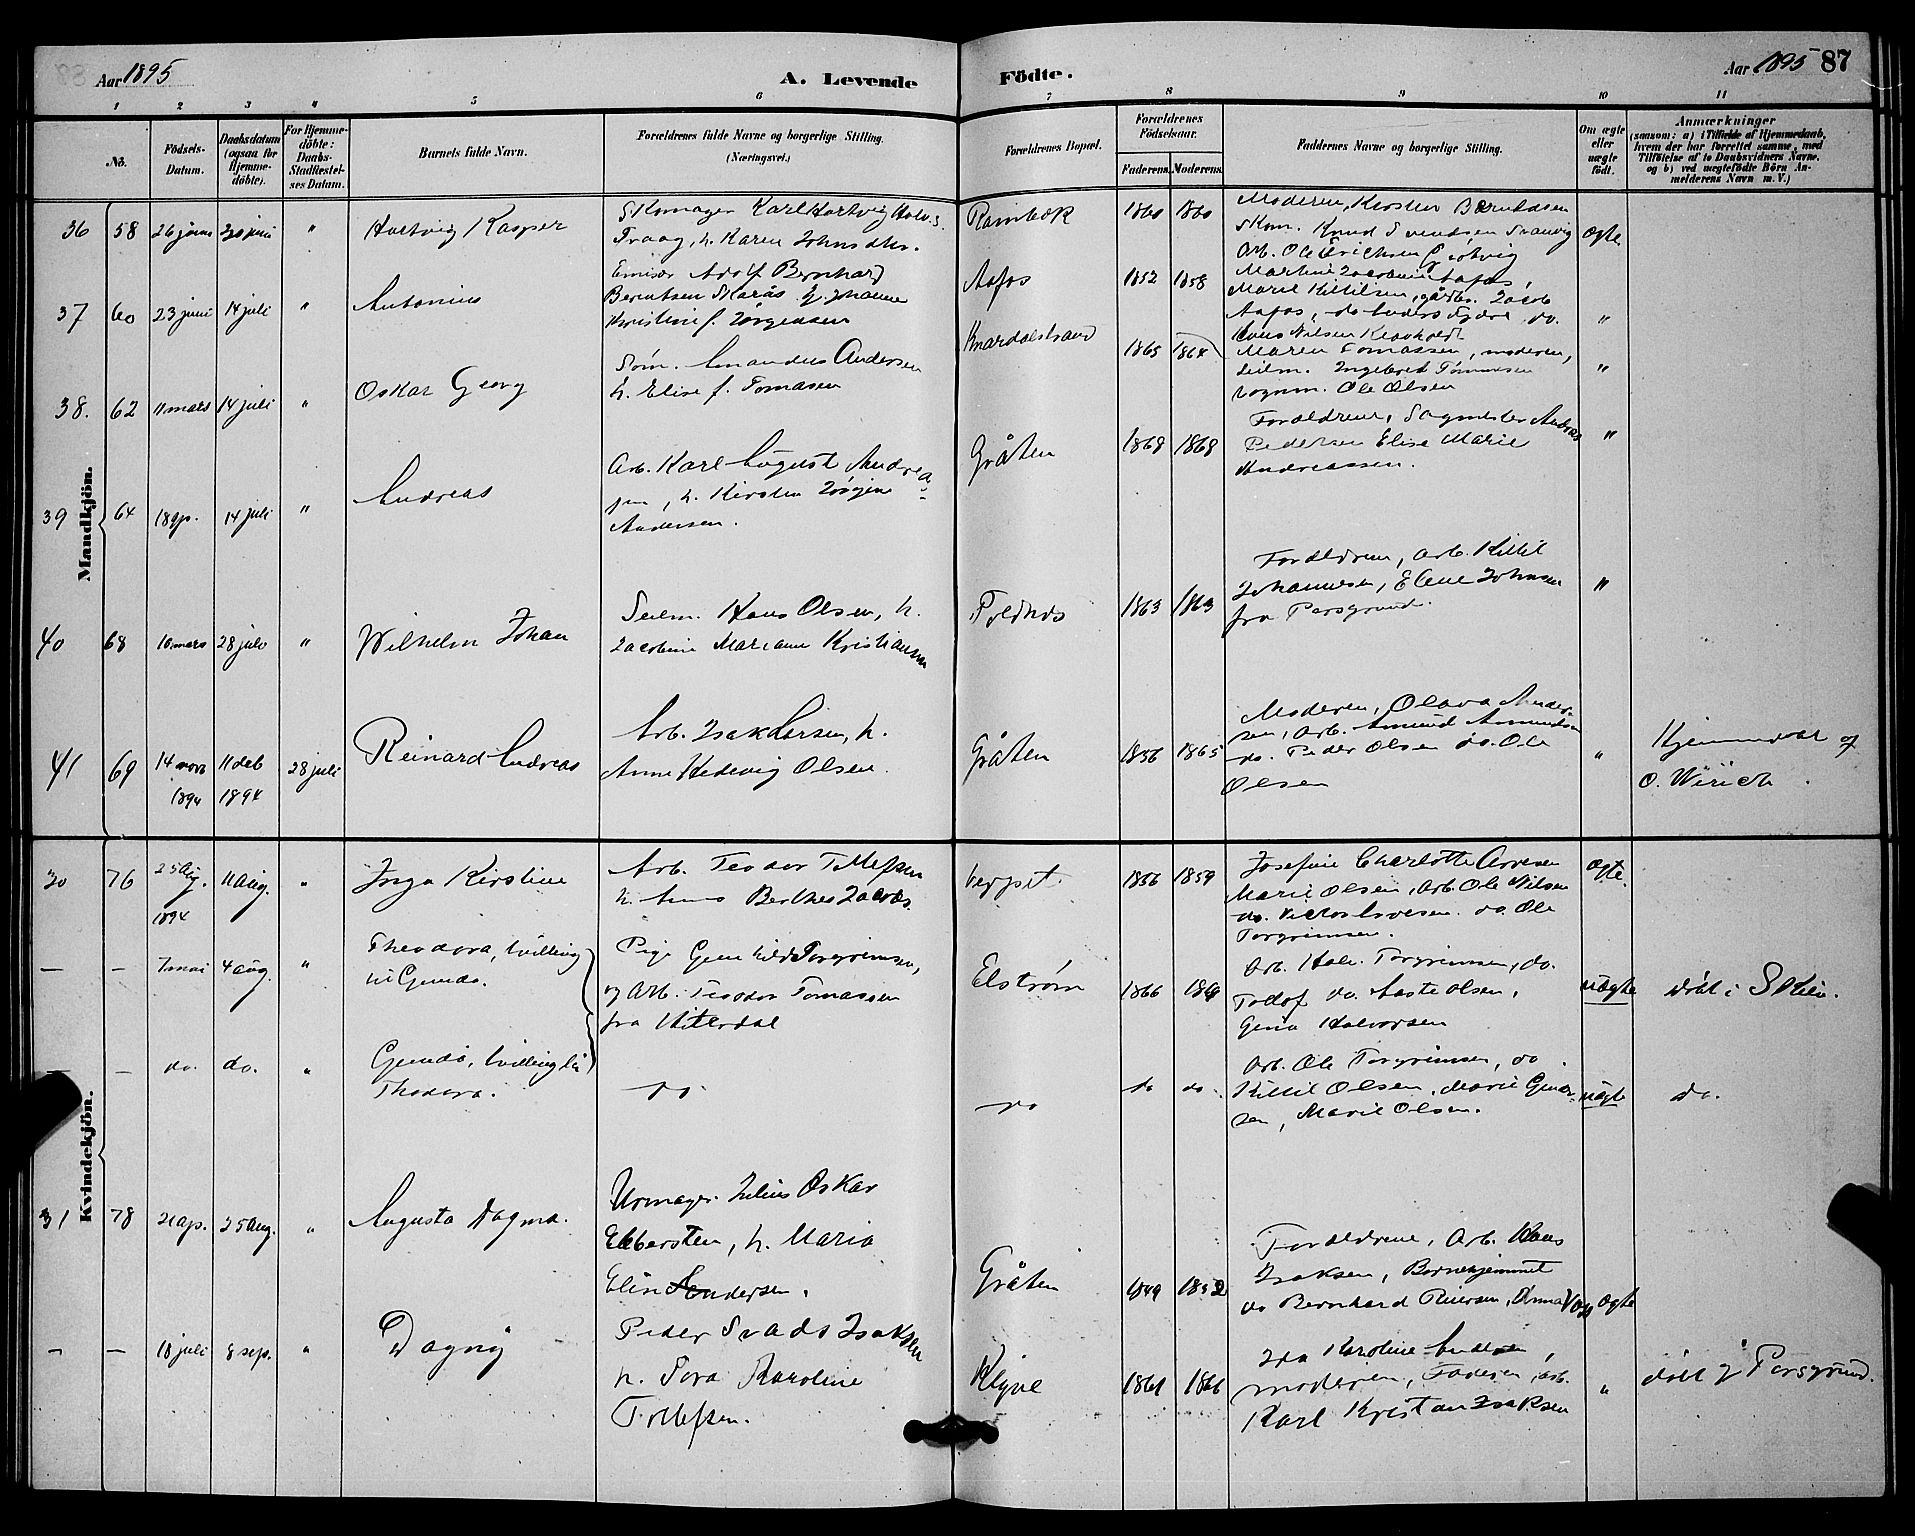 Aar 1895
A. Levende
Födte.
Aar 1895
87
1 2 3 4 5 6 7 8 9 10 11
No.
Födsels-
Datum.
Daabsdatum
(ogsaa for
Hjemme-
döbte).
For Hjemme-
döbte:
Daabs-
Stadfæstel-
ses Datum.
Barnets fulde Navn.
Forældrenes fulde Navne og borgerlige Stilling.
(Næringsvei.)
Forældrenes Bopæl.
Forældrenes
Födselsaar.
Faderens. Moderens.
Faddernes Navne og borgerlige Stilling.
Om ægte
eller
uægte
födt.
Anmærkninger
(saasom: a) i Tilfælde af Hjemmedaab,
hvem der har forrettet samme, med
Tilföielse af to Daabsvidners Navne,
og b) ved uægtefödte Börn An-
melderens Navn m. V.)
Mandkjön.
36 58 26 juni 30 juni " Hartvig Kasper
Skomager Karl Hartvig Halvs.
Traag, h. Karen Johnsdtr.
1860 1860
Moderen, Kirsten Berntsen
Skom. Knud Svendsen
Arb. Ole Erichsen
ægte
37 60 23 juni 14 juli " Antonius
Emisær Adolf Bernhard
Berentsen Skarås h. Johanne
Kristine f. Jörgensen
Aafos 1852 1858
Martine Jacobine Aafos,
Marie Kittilsen, gårdbr. Jacob
Aafos, do Anders do.
Hans Nilsen
"
38. 62 11 mars 14 juli " Oskar Georg
Söm. Amandus Andersen
h. Elise f. Tomasen
Knardalstrand 1865 1864
Maren Tomassen, moderen,
Seilm. Ingebret Tommesen
Ole Olsen
"
39 64 18 ap. 14 juli " Andreas
Arb. Karl August Andrea
sen, h. Kirsten Jörgine
Andersen.
Gråten 1868 1868
Forældrene, Sagmester Andreas
Pedersen Elise Marie
Andreassen.
"
40 68 10 mars 28 juli " Wilhelm Johan
Seilm. Hans Olsen, h.
Jacobine Mariane Kristiansen
Foldnes 1863 1863
Forældrene, Arb. Kittil
Johannesen, Elene Johnsen
fra Porsgrund.
"
41 69 14 nov 1894 11 deb 1894 28 juli Reinard Andreas
Arb. Isak Larsen, h.
Anne Hedevig Olsen.
Gråten 1856 1865
Moderen, Olava Ander-
sen, Arb. Amund Amundsen
do. Peder Olsen do. Ole
Olsen
"
Hjemmedöbt af
O. Wirich.
Kvindekjön.
30 76 25 Aug. 1894 11 Aug. " Inga Kirstine
Arb. Teodor Tollefsen
h. Anne Berthea Jacobs.
1856 1859
Josefine Charlotte Arvesen
Marie Olsen, Arb. Ole Nilsen
do. Victor Arvesen. do. Ole
Torgrimsen.
ægte.
— — 7 mai 4 aug. " Theodora, tvilling
til Gunda.
Pige Gunhild Torgrimsen,
og Arb. Teodor Tomassen
fra Hiterdal
Elström 1866 1869
Arb. Halv. Torgrimsen, do.
Tollof do. Aaste Olsen,
Gina Halvorsen
uægte
döbt i Skien.
— — do. do. " Gunda, tvilling til
Thodora.
do
do
do do.
Arb. Ole Torgrimsen, do
Kittil Olsen, Marie Gunder-
sen, Marie Olsen.
uægte
do.
31 78 21 ap. 25 Aug. " Augusta Dagma.
Urmager Julius Oskar
Ebbersten, h. Maria
Elin Andersen.
Gråten 1849 1852
Forældrene, Arb. Hans
Isaksen, Barnehjemmet
do Bernhard Riersen, Anna Voss
ægte
— — 18 juli 8 sep. " Dagny
Peder Svads Isaksen
h. Tora Karoline
Tollefsen.
Klyve 1861 1866
Ida Karoline Andersen,
moderen, Faderen, Arb.
Karl Kristan Isaksen
"
döbt i Porsgrund.